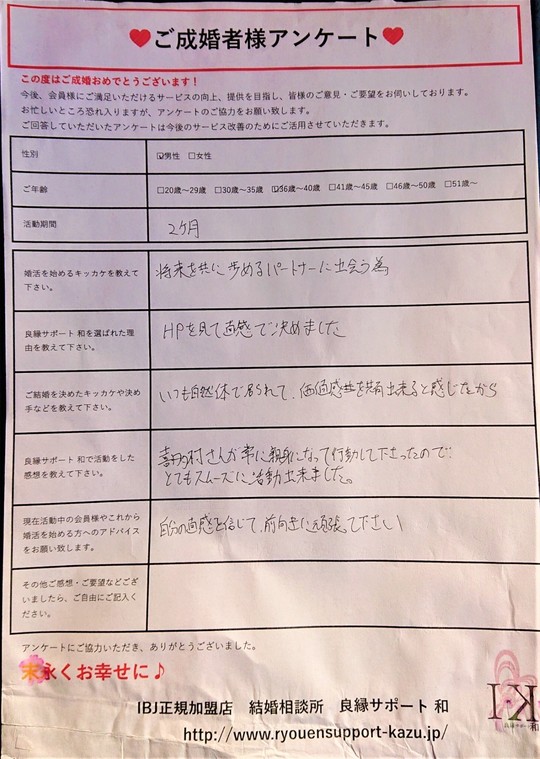 ♥ご成婚者様アンケート♥
この度はご成婚おめでとうございます！
今後、会員様にご満足いただけるサービスの向上、提供を目指し、皆様のご意見・ご要望をお伺いしております。
お忙しいところ恐れ入りますが、アンケートのご協力をお願い致します。
ご回答していただいたアンケートは今後のサービス改善のためにご活用させていただきます。
性別
☑男性 □女性
ご年齢
□20歳～29歳 □30歳～35歳 ☑36歳～40歳 □41歳～45歳 □46歳～50歳 □51歳～
活動期間
2ヶ月
婚活を始めるキッカケを教えて
下さい。
将来を共に歩めるパートナーに出会う為
良縁サポート 和を選ばれた理
由を教えて下さい。
HPを見て直感で決めました
ご結婚を決めたキッカケや決め
手などを教えて下さい。
いつも自然体で居られて、価値感を共有出来ると感じたから
良縁サポート 和で活動をした
感想を教えて下さい。
喜多村さんが常に親身になって行動して下さったので
とてもスムーズに活動出来ました。
現在活動中の会員様やこれから
婚活を始める方へのアドバイス
をお願い致します。
自分の直感を信じて、前向きに頑張って下さい
その他ご感想・ご要望などござ
いましたら、ご自由にご記入く
ださい。
アンケートにご協力いただき、ありがとうございました。
末永くお幸せに♪
IBJ正規加盟店 結婚相談所 良縁サポート 和
http://www.ryouensupport-kazu.jp/
良縁サポート 和